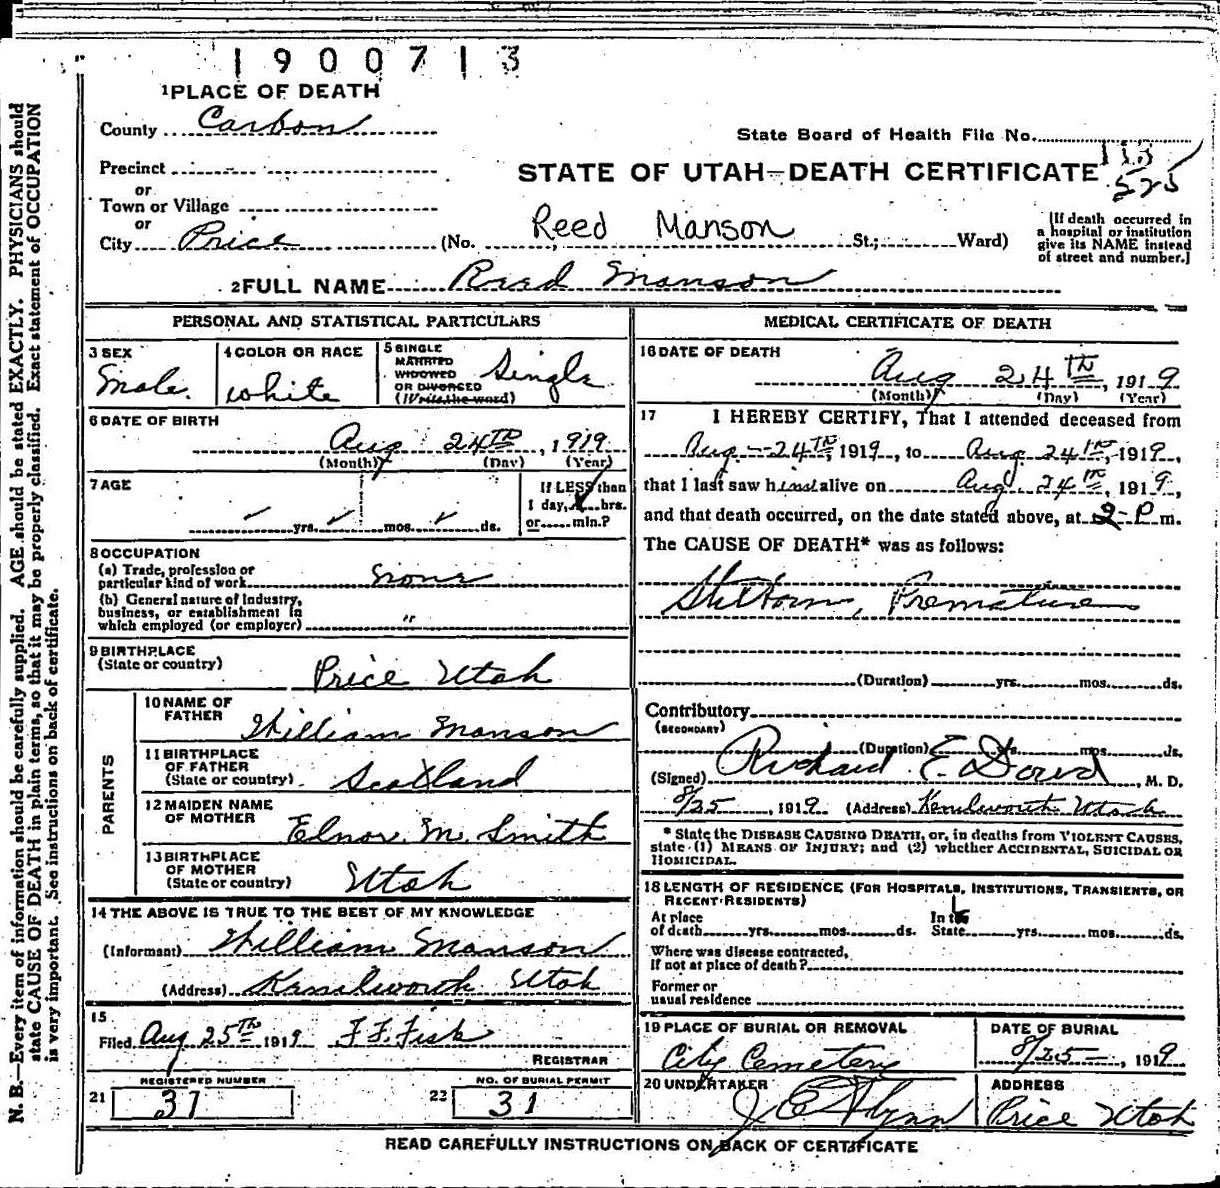 1900713
1 PLACE OF DEATH
County Carbon
State Board of Health File No.
Precinct
or
Town or Village
or
City Price
STATE OF UTAH—DEATH CERTIFICATE
113
525
(No. Reed Manson St.; Ward)
[If death occurred in
a hospital or institution
give its NAME instead
of street and number.]
2 FULL NAME Reed Manson
PERSONAL AND STATISTICAL PARTICULARS
3 SEX
Male.
4 COLOR OR RACE
white
5 SINGLE
MARRIED
WIDOWED
OR DIVORCED
(Write the word)
Single
6 DATE OF BIRTH
Aug 24TH, 1919
(Month) (Day) (Year)
7 AGE
yrs. mos. ds.
If LESS than
1 day, hrs.
or min.?
8 OCCUPATION
(a) Trade, profession or
particular kind of work None
(b) General nature of Industry,
business, or establishment in
which employed (or employer) "
9 BIRTHPLACE
(State or country)
Price Utah
PARENTS
10 NAME OF
FATHER
William Manson
11 BIRTHPLACE
OF FATHER
(State or country)
Scotland
12 MAIDEN NAME
OF MOTHER
Elnor M. Smith
13 BIRTHPLACE
OF MOTHER
(State or country)
Utah
14 THE ABOVE IS TRUE TO THE BEST OF MY KNOWLEDGE
(Informant) William Manson
(Address) Kenilworth Utah
15
Filed Aug 25TH 1919 F.F. Fisk
REGISTRAR
REGISTERED NUMBER
21 37
NO. OF BURIAL PERMIT
22 31
MEDICAL CERTIFICATE OF DEATH
16 DATE OF DEATH
Aug 24TH, 1919
(Month) (Day) (Year)
17 I HEREBY CERTIFY, That I attended deceased from
Aug 24TH, 1919, to Aug 24TH, 1919,
that I last saw him alive on Aug. 24TH, 1919,
and that death occurred, on the date stated above, at 2 P m.
The CAUSE OF DEATH* was as follows:
Stillborn, Premature
(Duration) yrs. mos. ds.
Contributory
(SECONDARY)
(Duration) yrs. mos. ds.
(Signed) Richard E. Dowd, M. D.
8/25, 1919 (Address) Kenilworth Utah
* State the DISEASE CAUSING DEATH, or, in deaths from VIOLENT CAUSES,
state (1) MEANS OF INJURY; and (2) whether ACCIDENTAL, SUICIDAL OR
HOMICIDAL.
18 LENGTH OF RESIDENCE (FOR HOSPITALS, INSTITUTIONS, TRANSIENTS, OR
RECENT RESIDENTS)
At place In the
of death yrs. mos. ds. State yrs. mos. ds.
Where was disease contracted,
if not at place of death?
Former or
usual residence
19 PLACE OF BURIAL OR REMOVAL
City Cemetery
DATE OF BURIAL
8/25, 1919
20 UNDERTAKER
J E Flynn
ADDRESS
Price Utah
READ CAREFULLY INSTRUCTIONS ON BACK OF CERTIFICATE
N. B.—Every item of information should be carefully supplied. AGE should be stated EXACTLY. PHYSICIANS should
state CAUSE OF DEATH in plain terms, so that it may be properly classified. Exact statement of OCCUPATION
is very important. See instructions on back of certificate.